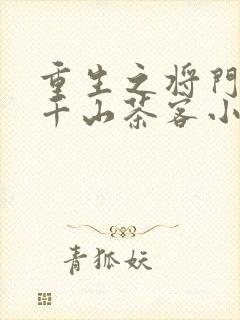 重生之将門
千山茶客小
青狐妖